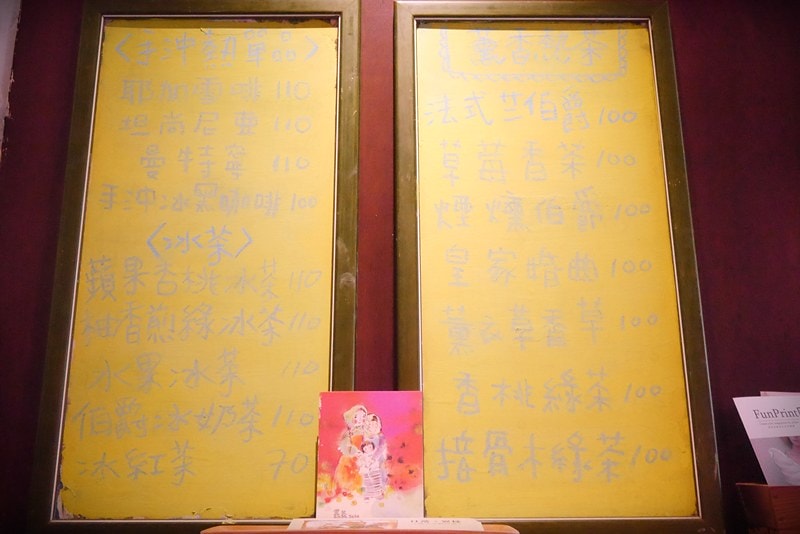 <手沖熱單品>
耶加雪啡 110
坦尚尼亞 110
曼特寧 110
手沖冰黑咖啡 100
<冰茶>
蘋果香桃冰茶 110
柚香煎綠冰茶 110
水果冰茶 110
伯爵冰奶茶 110
冰紅茶 70
薰香熱茶
法式芒伯爵 100
草莓香茶 100
煙燻伯爵 100
皇家婚曲 100
薰衣草香草 100
香桃綠茶 100
接骨木綠茶 100
FunPrint